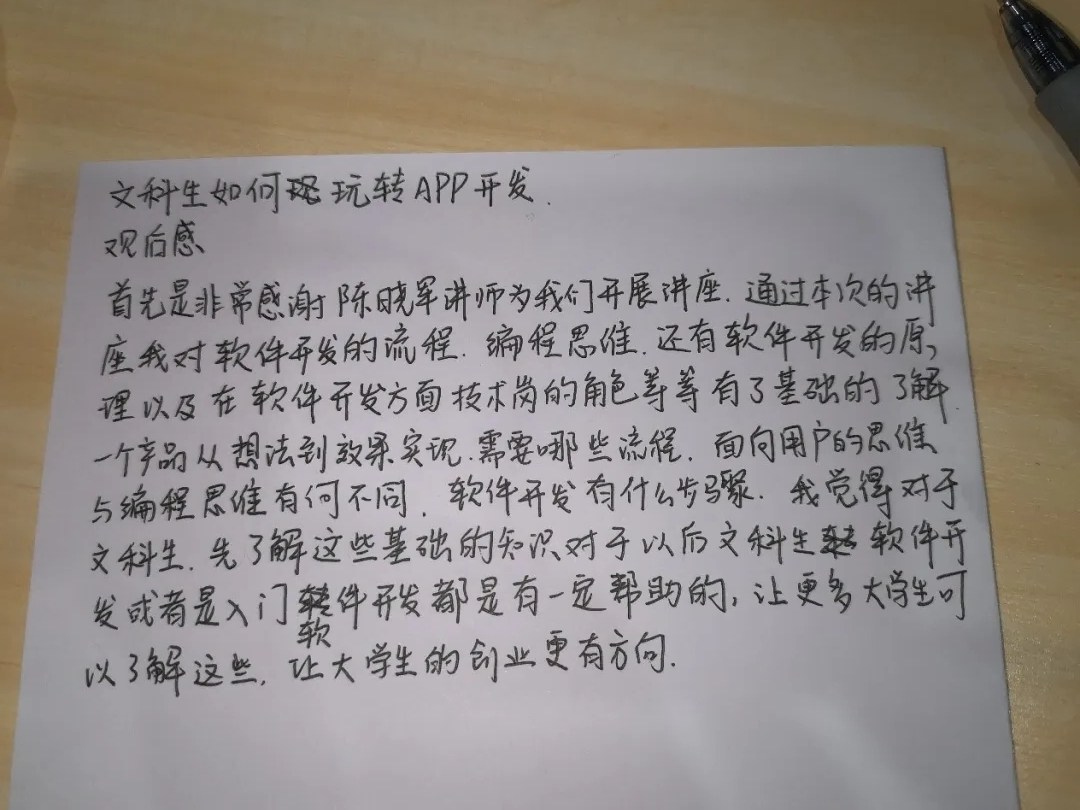 文科生如何玩转APP开发.
观后感
首先是非常感谢陈晓军讲师为我们开展讲座.通过本次的讲
座我对软件开发的流程.编程思维.还有软件开发的原,
理以及在软件开发方面技术岗的角色等等有了基础的了解
一个产品从想法到效果实现.需要哪些流程.面向用户的思维
与编程思维有何不同.软件开发有什么步骤.我觉得对于
文科生.先了解这些基础的知识对于以后文科生软件开
发或者是入门软件开发都是有一定帮助的,让更多大学生可
以了解这些,让大学生的创业更有方向.